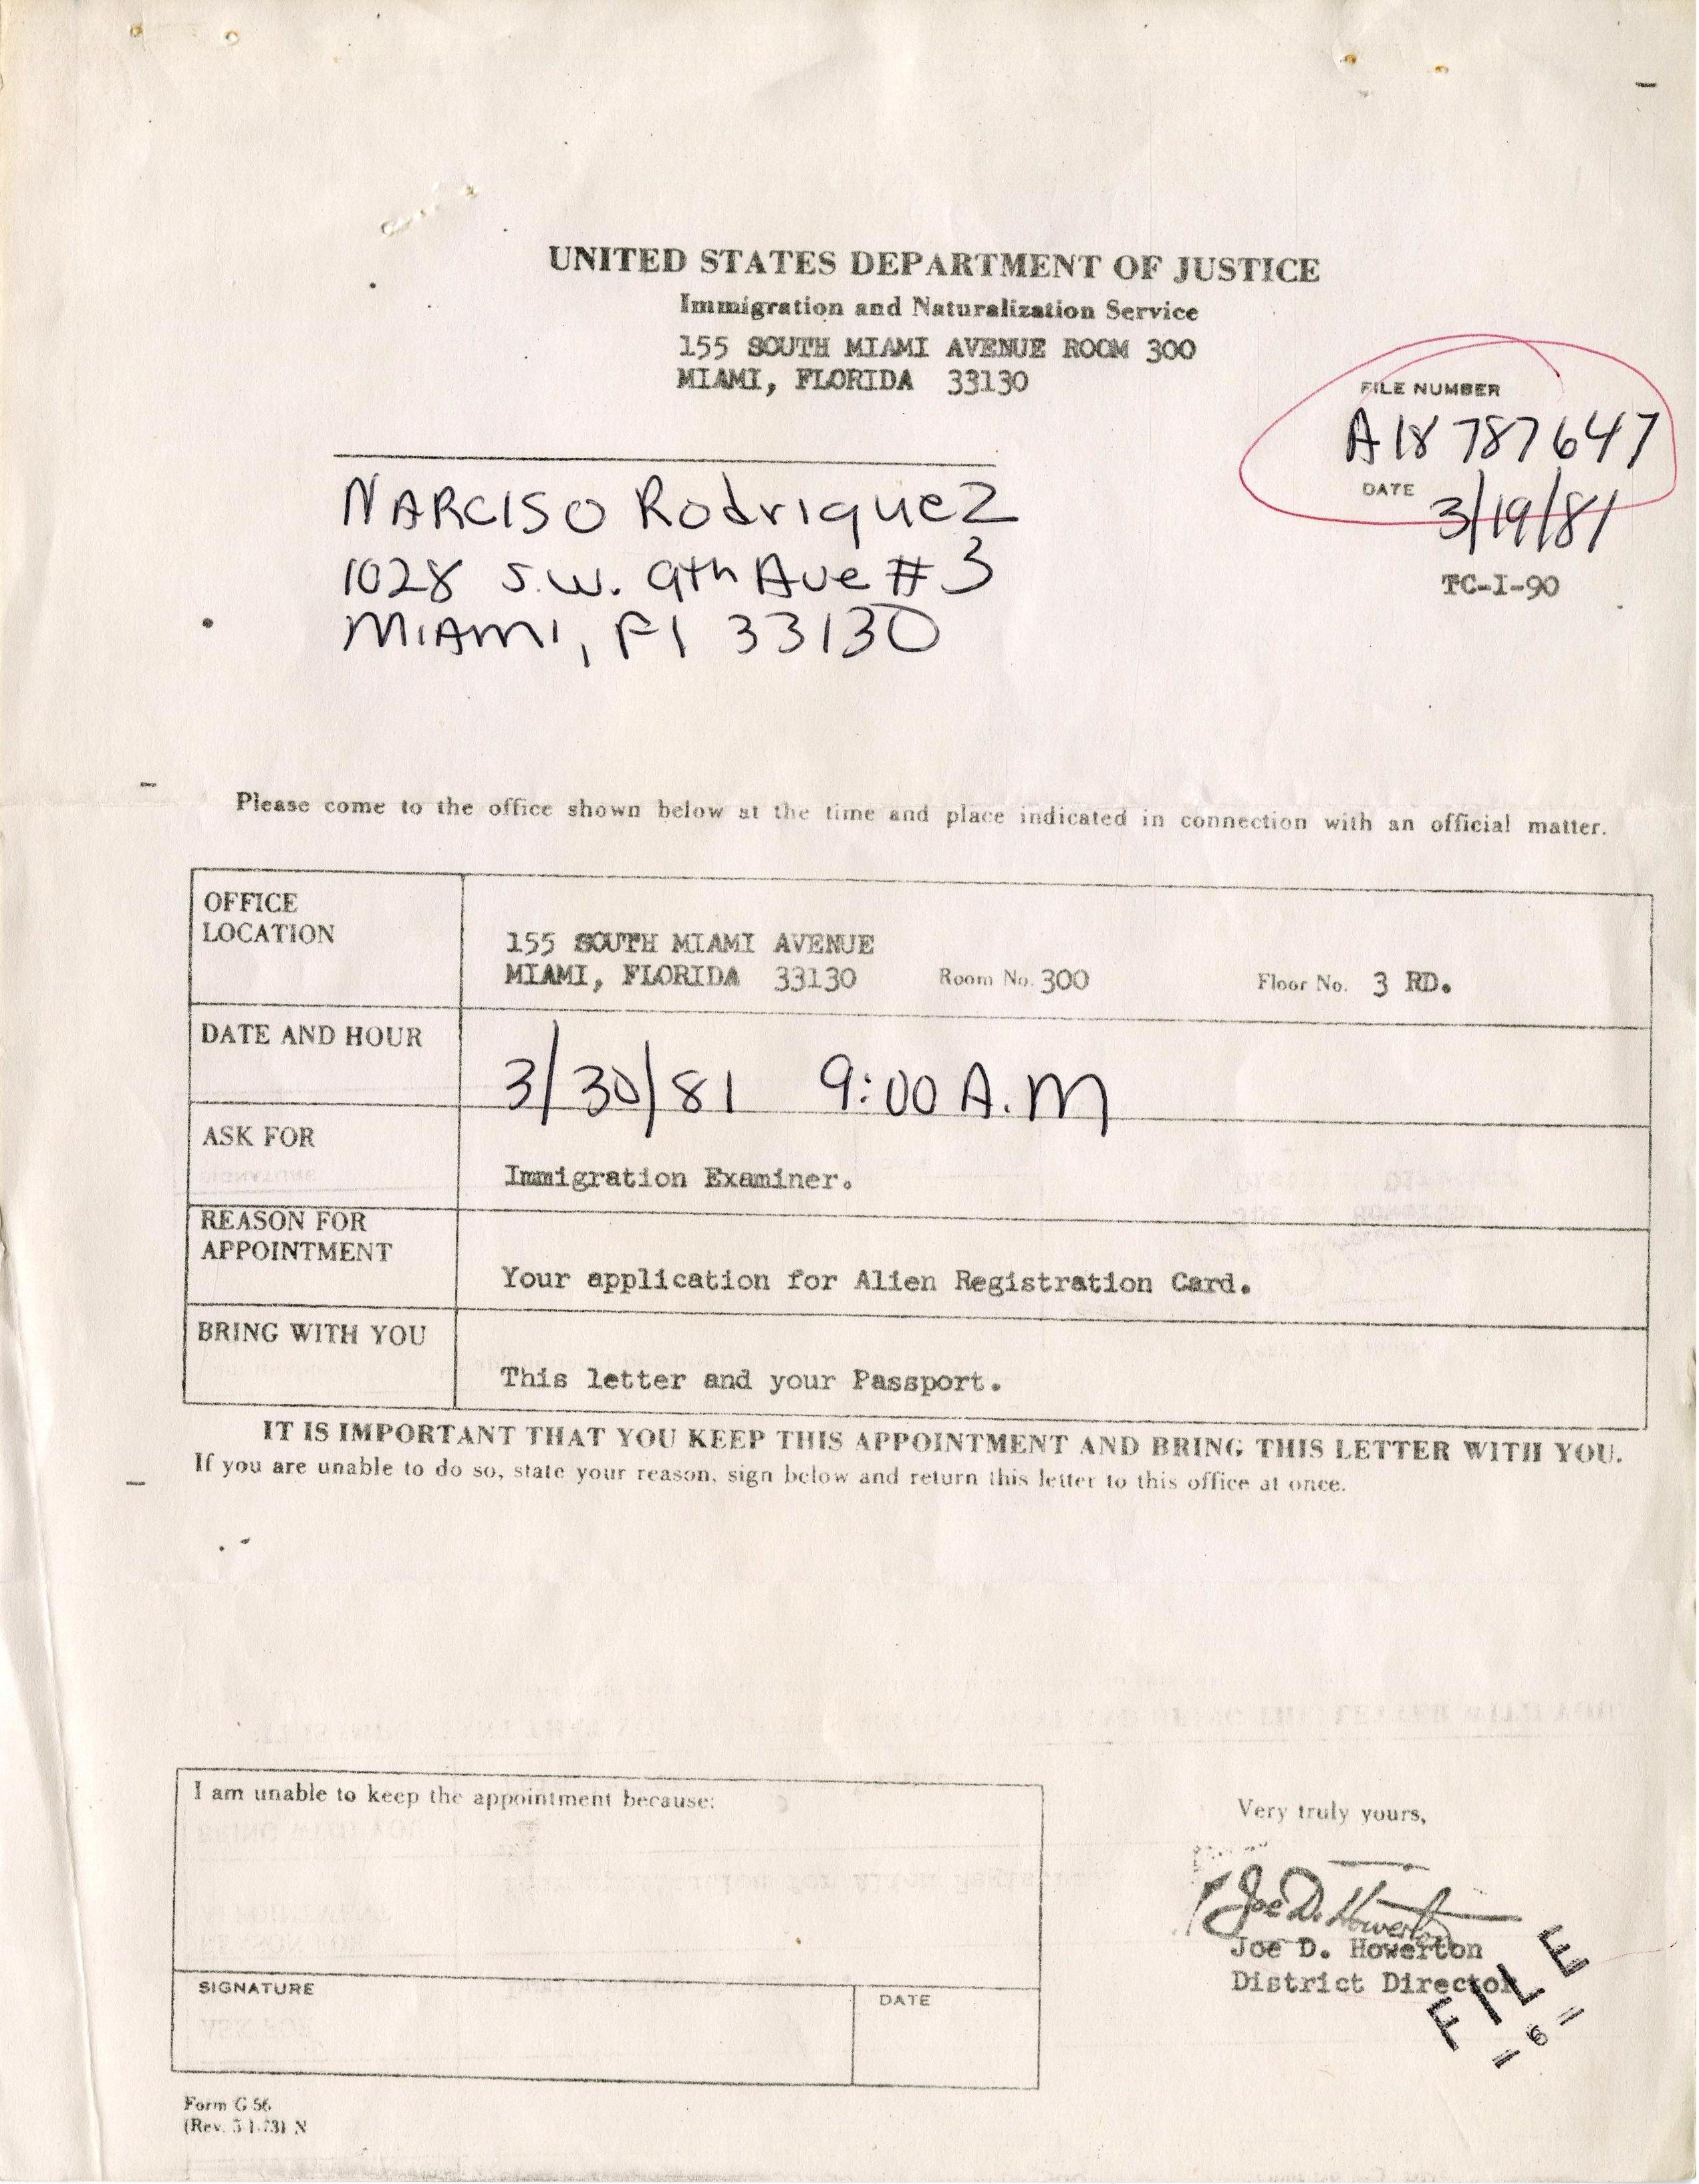 UNITED STATES DEPARTMENT OF JUSTICE
Immigration and Naturalization Service
155 SOUTH MIAMI AVENUE ROOM 300
MIAMI, FLORIDA 33130
FILE NUMBER
A18 787647
DATE 3/19/81
TC-I-90
NARCISO Rodriquez
1028 S.W. 9th Ave #3
MIAMI, Fl 33130
Please come to the office shown below at the time and place indicated in connection with an official matter.
OFFICE
LOCATION
155 SOUTH MIAMI AVENUE
MIAMI, FLORIDA 33130 Room No. 300 Floor No. 3 RD.
DATE AND HOUR
3/30/81 9:00 A.M
ASK FOR
Immigration Examiner.
REASON FOR
APPOINTMENT
Your application for Alien Registration Card.
BRING WITH YOU
This letter and your Passport.
IT IS IMPORTANT THAT YOU KEEP THIS APPOINTMENT AND BRING THIS LETTER WITH YOU.
If you are unable to do so, state your reason, sign below and return this letter to this office at once.
I am unable to keep the appointment because:
SIGNATURE
DATE
Very truly yours,
Joe D. Howerton
Joe D. Howerton
District Director
FILE
6
Form G-56
(Rev. 5-1-73) N